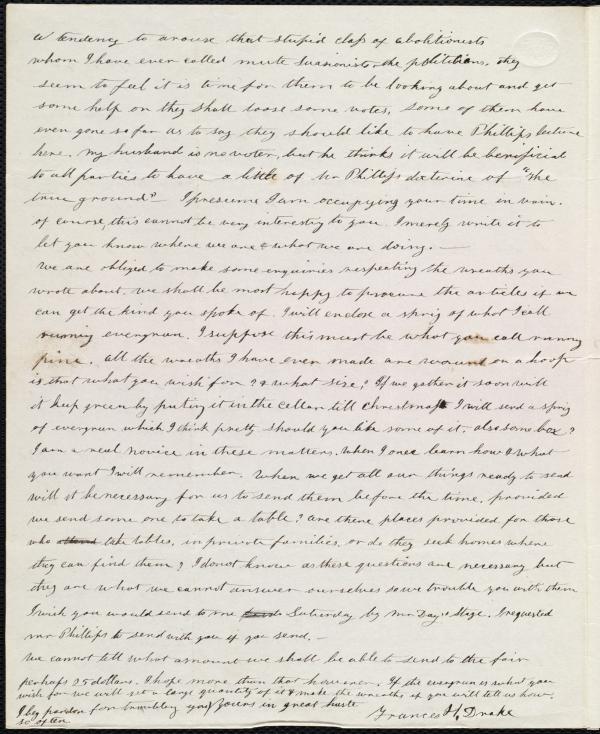 a tendency to arouse that stupid class of abolitionists
whom I have ever called mute Suasionists & the politicians. They
seem to feel it is time for them to be looking about and get
some help or they shall loose some votes, some of them have
even gone so far as to say they should like to have Phillips lecture
here. my husband is no voter, but he thinks it will be benificial
to all parties to have a little of Mr Phillips doctrine of "the
true ground" I presume I am occupying your time in vain.
of course, this cannot be very interesting to you. I merely write it to
let you know where we are & what we are doing. —
We are obliged to make some enquiries respecting the wreaths you
wrote about. we shall be most happy to procure the articles if we
can get the kind you spoke of. I will enclose a sprig of what I call
runing evergreen. I suppose this must be what you call runing
pine. all the wreaths I have ever made are wound on a hoop
is that what you wish for? & what size? If we gather it soon will
it keep green by puting it in the cellar till christmas I will send a sprig
of evergreen which I think pretty should you like some of it. also some box?
I am a real novice in these matters. When I once learn how & what
you want I will remember. When we get all our things ready to send
will it be necessary for us to send them before the time, provided
we send some one to take a table? are there places provided for those
who attend take tables, in private families, or do they seek homes where
they can find them? I do not know as these questions are necessary but
they are what we cannot answer ourselves so we trouble you with them
I wish you would send to me Saturday by Mr Day's Stage. I requested
Mr Phillips to send with you if you send. —
We cannot tell what amount we shall be able to send to the fair
perhaps 25 dollars. I hope more than that however. If the evergreen is what you
wish for we will get a large quantity of it & make the wreaths if you will tell us how.
I beg pardon for troubling you yours in great haste
so often
Frances H. Drake